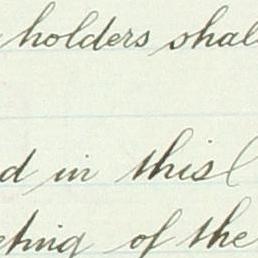 holders shal
d in this
eting of the